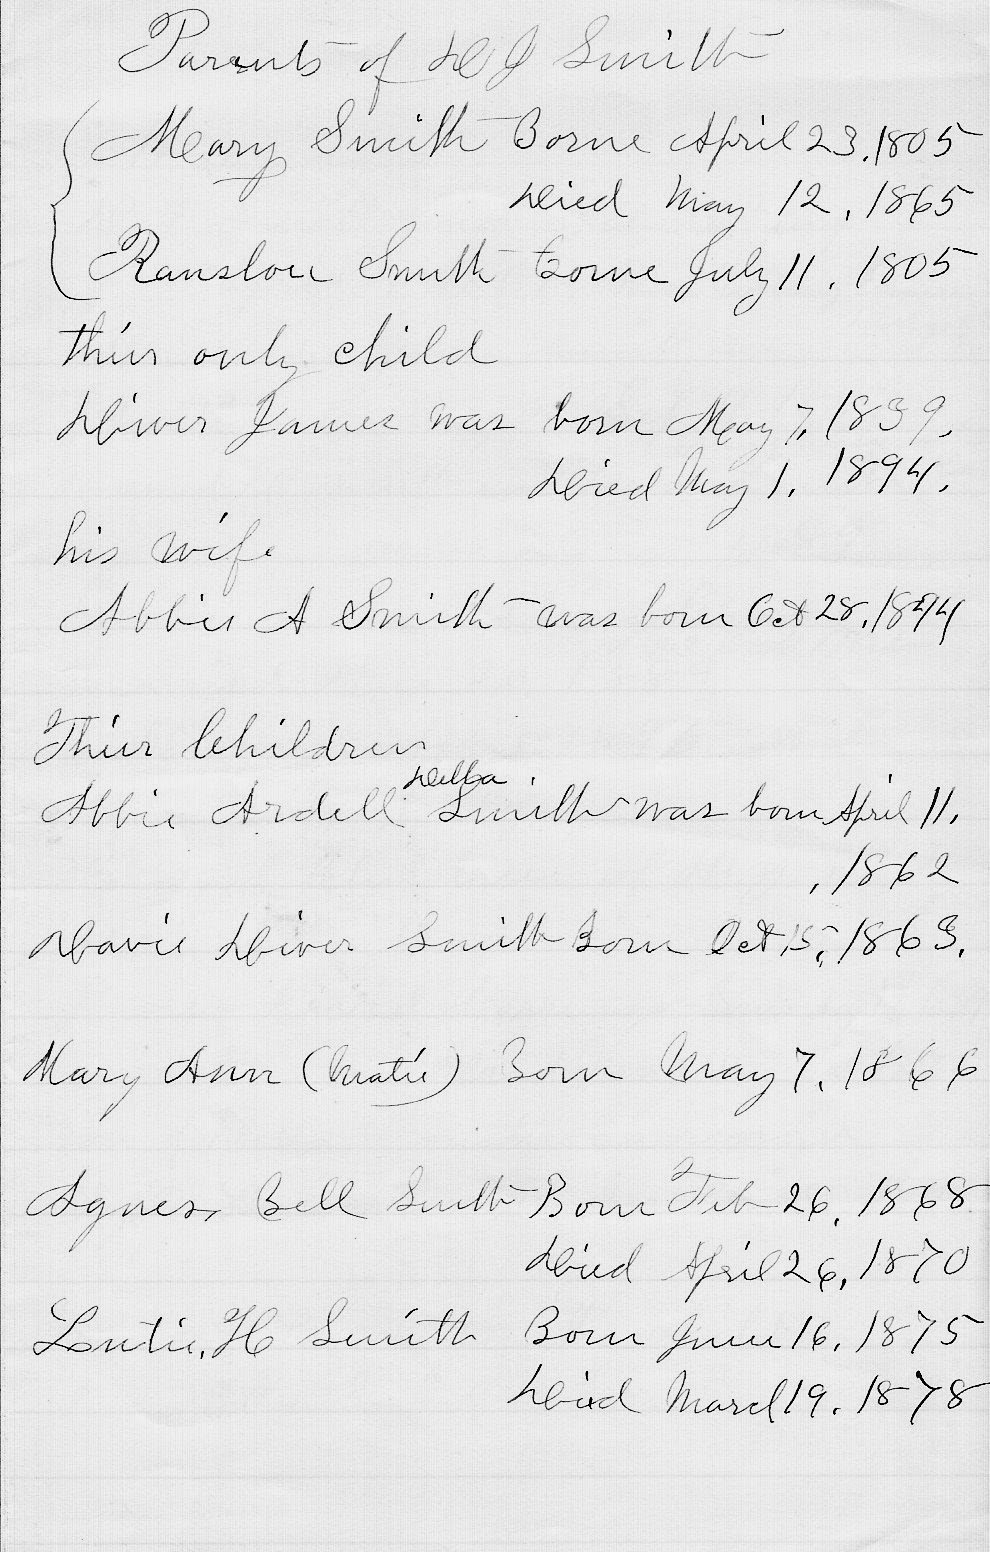 Parents of D J Smith
Mary Smith Borne April 23, 1805
Died May 12, 1865
Ranslou Smith borne July 11, 1805
thier only child
Diver James was born May 7, 1839.
Died May 1, 1894.
his wife
Abbie A Smith was born Oct 28, 1844
Thier Children
Della
Abbie Ardell Smith was born April 11,
, 1862
Davie Diver Smith Born Oct 15, 1863.
Mary Ann (Matie) Born May 7, 1866
Agnes, Bell Smith Born Feb 26, 1868
Died April 26, 1870
H Smith Born June 16, 1875
Died March 19, 1878